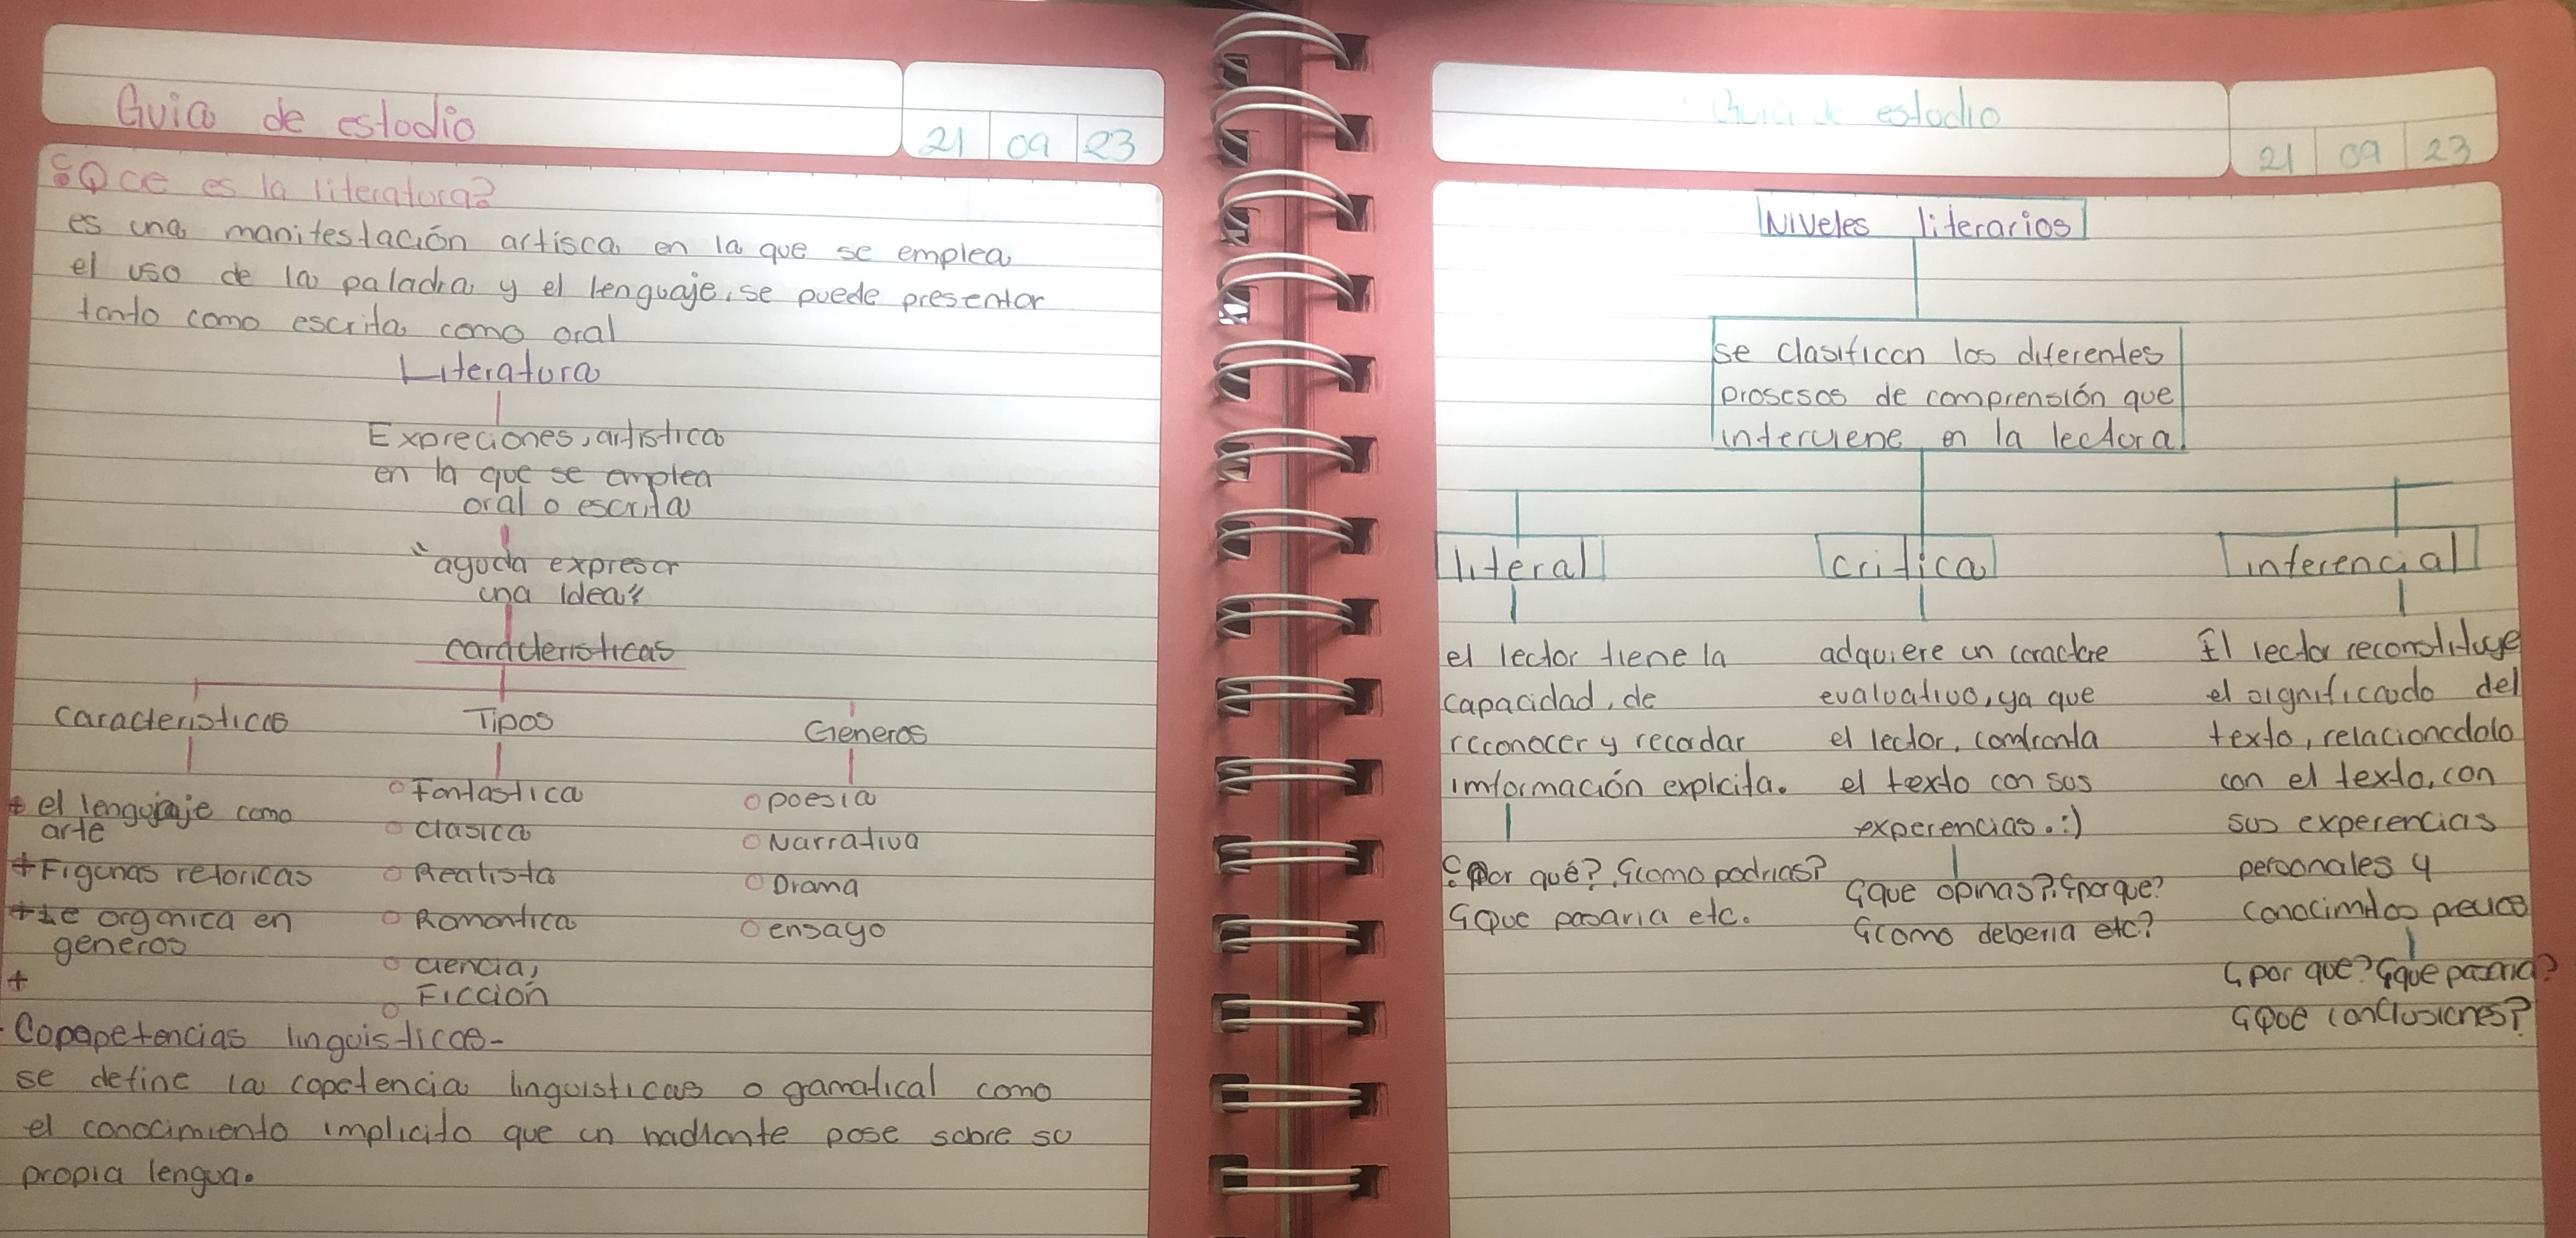 Guia de estudio
21 09 23
¿Que es la literatura?
es una manifestación artisca en la que se emplea
el uso de la paladra y el lenguaje, se puede presentar
tanto como escrita como oral
Literatura
Expreciones, artistica
en la que se emplea
oral o escrita
"ayuda expresar
una idea"
caracteristicas
caracteristicas
Tipos
Generos
+ el lenguaje como
arte
+ Figuras retoricas
+ se organica en
generos
+
○ Fantastica
○ clasica
○ Realista
○ Romantica
○ ciencia,
Ficción
○
○ poesia
○ Narrativa
○ Drama
○ ensayo
Copapetencias linguisticas-
se define la copetencia linguisticas o gamatical como
el conocimiento implicito que un hadlante pose sobre su
propia lengua.
Guia de estudio
21 09 23
Niveles literarios
se clasifican los diferentes
prosesos de comprensión que
interviene en la lectura.
literal
el lector tiene la
capacidad, de
reconocer y recordar
imformación explcita.
¿Por qué? ¿como podrias?
¿Que pasaria etc.
critica
adquiere un caractre
evaluativo, ya que
el lector, comfronta
el texto con sus
experencias. :)
¿que opinas? ¿porque?
¿como deberia etc?
inferencial
El lector reconstituye
el significado del
texto, relacionedolo
con el texto, con
sus experencias
personales y
conocimitos previos
¿por que? ¿que pasaria?
¿Que conclusiones?